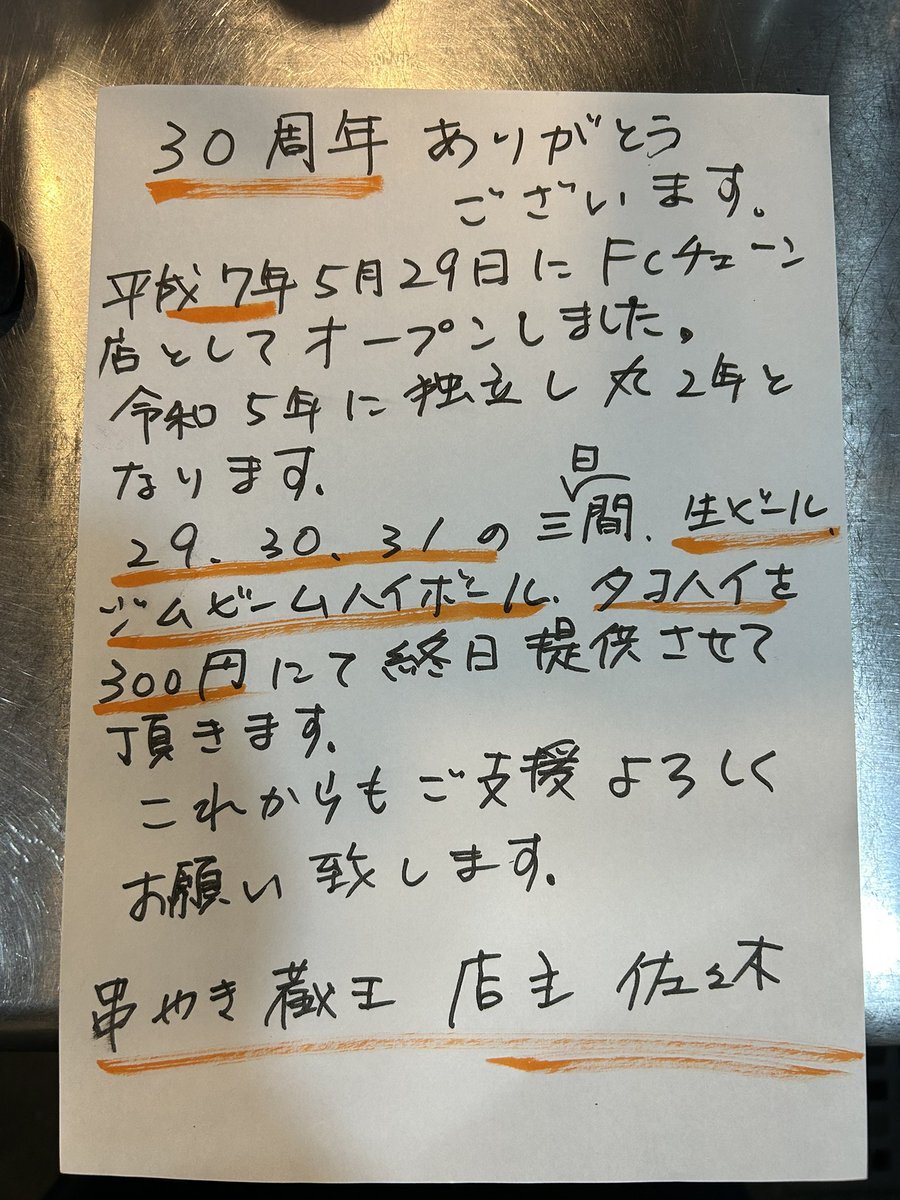 30周年 ありがとう
ございます。
平成7年5月29日に FCチェーン
店としてオープンしました。
令和5年に独立し丸2年と
なります。
29、30、31の三日間、生ビール、
ジムビームハイボール、タコハイを
300円にて終日提供させて
頂きます。
これからもご支援よろしく
お願い致します。
串やき蔵王 店主 佐々木